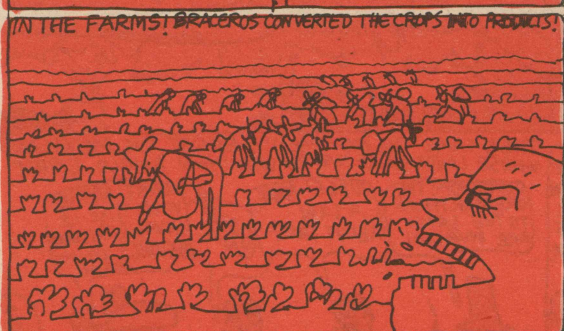 IN THE FARMS! BRACEROS CONVERTED THE CROPS INTO PRODUCTS!